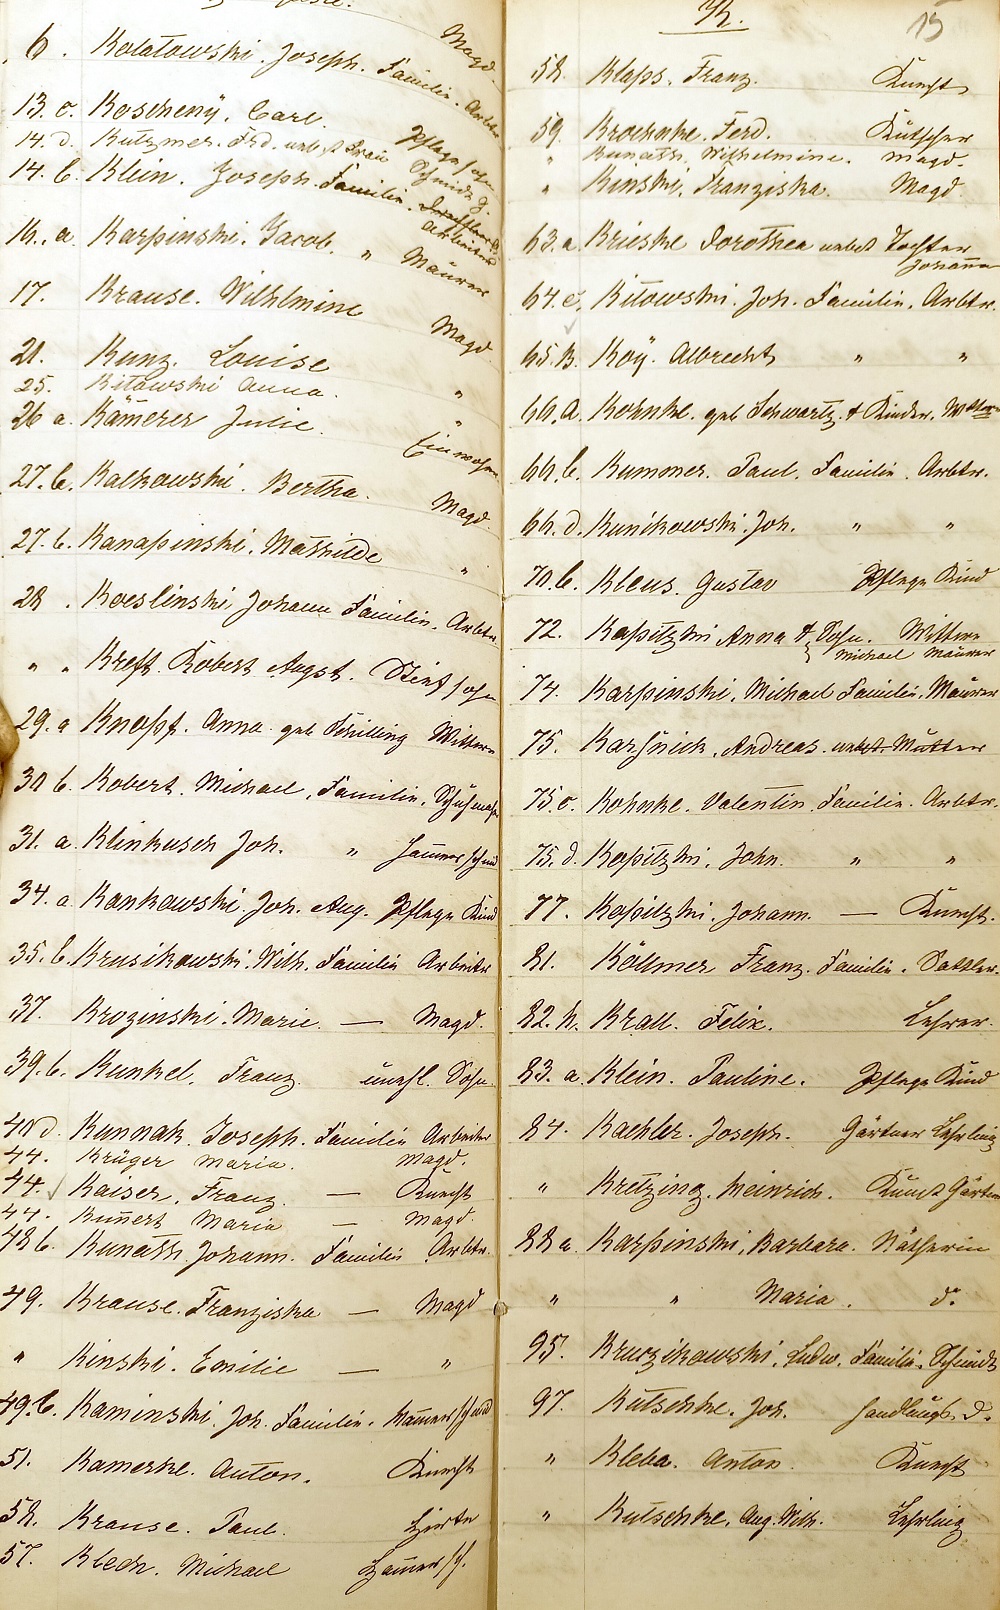 Magd.
6. Kolatowski. Joseph. Familie. Arbtr
13. c. Koscheny. Carl. Pflegesohn
14. d. Kutzmer. Frd. nebst Frau Schmidt g.
14. b. Klein. Joseph. Familie. Arbeiter
16. a. Karpinski. Jacob. " Maurer
17. Krause. Wilhlmine Magd
21. Kunz. Louise "
25. Kitowski Anna. "
26 a. Kämerer Julie. Einwohn
27. b. Kalkowski. Bertha. Magd.
27. b. Kanapinski. Mathilde "
28. Koeslinski, Johann Familie. Arbtr
" " Kreft. Robert Augst. Stiefsohn
29. a Knopf. Anna geb Schilling Wittwe
30 b. Kobert. Michael, Familie, Schuhmach
31. a Klinkusch Joh. " Hammerschmid
34. a Kankowski, Joh. Aug. Pflege Kind
35. b. Krusikowski. Wilh. Familie Arbeiter
37. Krozinski. Marie. — Magd.
39. b. Kunkel. Franz. unehl. Sohn
40 d. Kunnak. Joseph. Familie Arbeiter
44. Krüger Maria. Magd.
44. Kaiser. Franz. — Knecht
44. Kunert Maria — Magd.
48 b. Kunath. Johann. Familie Arbtr.
49. Krause. Franziska — Magd
" Kinski. Emilie — "
49. b. Kaminski. Joh. Familie. Hammerschmd
51. Kamerke. Anton. Knecht
52. Krause. Paul. Hirte
57. Klech. Michael Hamersch.
K. 15
58. Klaps. Franz. Knecht
59. Krohnke. Ferd. Kutscher
" Kunath, Wilhelmine. Magd.
" Kinski, Franziska. Magd
63. a. Krieske Dorothea nebst Tochter
Johanna
64. c. Kitowski. Joh. Familie. Arbtr.
65. B. Koy. Albrecht " "
66. a. Kohnke. geb Schwartz. & Kinder. Wittwe
66. b. Kummer. Paul. Familie. Arbtr.
66. d. Kunikowski. Joh. " "
70. b. Kleus. Gustav Pflege Kind
72. Kopitzki Anna & Sohn. Wittwe
Michael Maurer
74. Karpinski. Michael Familie. Maurer
75. Karsnick. Andreas nebst Mutter
75. c. Kohnke. Valentin Familie. Arbtr.
75. d. Kopitzki. John. " "
77. Kopitzki. Johann. — Knecht.
81. Köllmer Franz. Familie. Sattler.
82. h. Krall. Felix. Lehrer.
83. a. Klein. Pauline. Pflege Kind
84. Kaehler. Joseph. Gärtner Lehrling
" Kretzing. Heinrich. Kunst Gärtner
88 a. Karpinski, Barbara. Nätherin
" " Maria. do.
95. Krurzikowski. Ludw. Familie. Schmidt
97. Kutschke. Joh. Handlungs. D.
" Kleba. Anton. Knecht
" Kutschke. Aug. Wilh. Lehrling